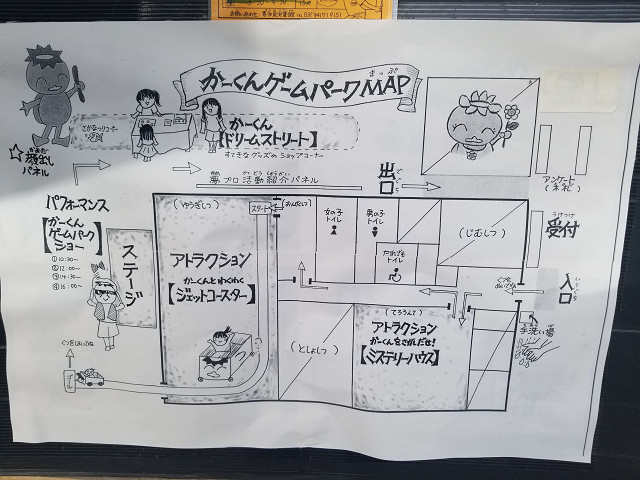 かーくんゲームパークMAP
まっぷ
さかなつりコーナー
かーくん
【ドリームストリート】
すてきなグッズのショップコーナー
☆顔出し
パネル
夢プロ活動紹介パネル
かつどうしょうかい
出口
でぐち
アンケート
(木札)
パフォーマンス
【かーくん
ゲームパーク
ショー】
①10:30~
②12:00~
③14:30~
④16:00~
ステージ
(ゆうぎしつ)
スタート
アトラクション
かーくんとわくわく
【ジェットコースター】
女の子
トイレ
男の子
トイレ
だれでも
トイレ
(じむしつ)
うけつけ
受付
入口
いりぐち
くつを
ぬいでね
手洗い場
(としょしつ)
アトラクション
かーくんをさがしだせ!
【ミステリーハウス】
くつをはいてね
ゴール